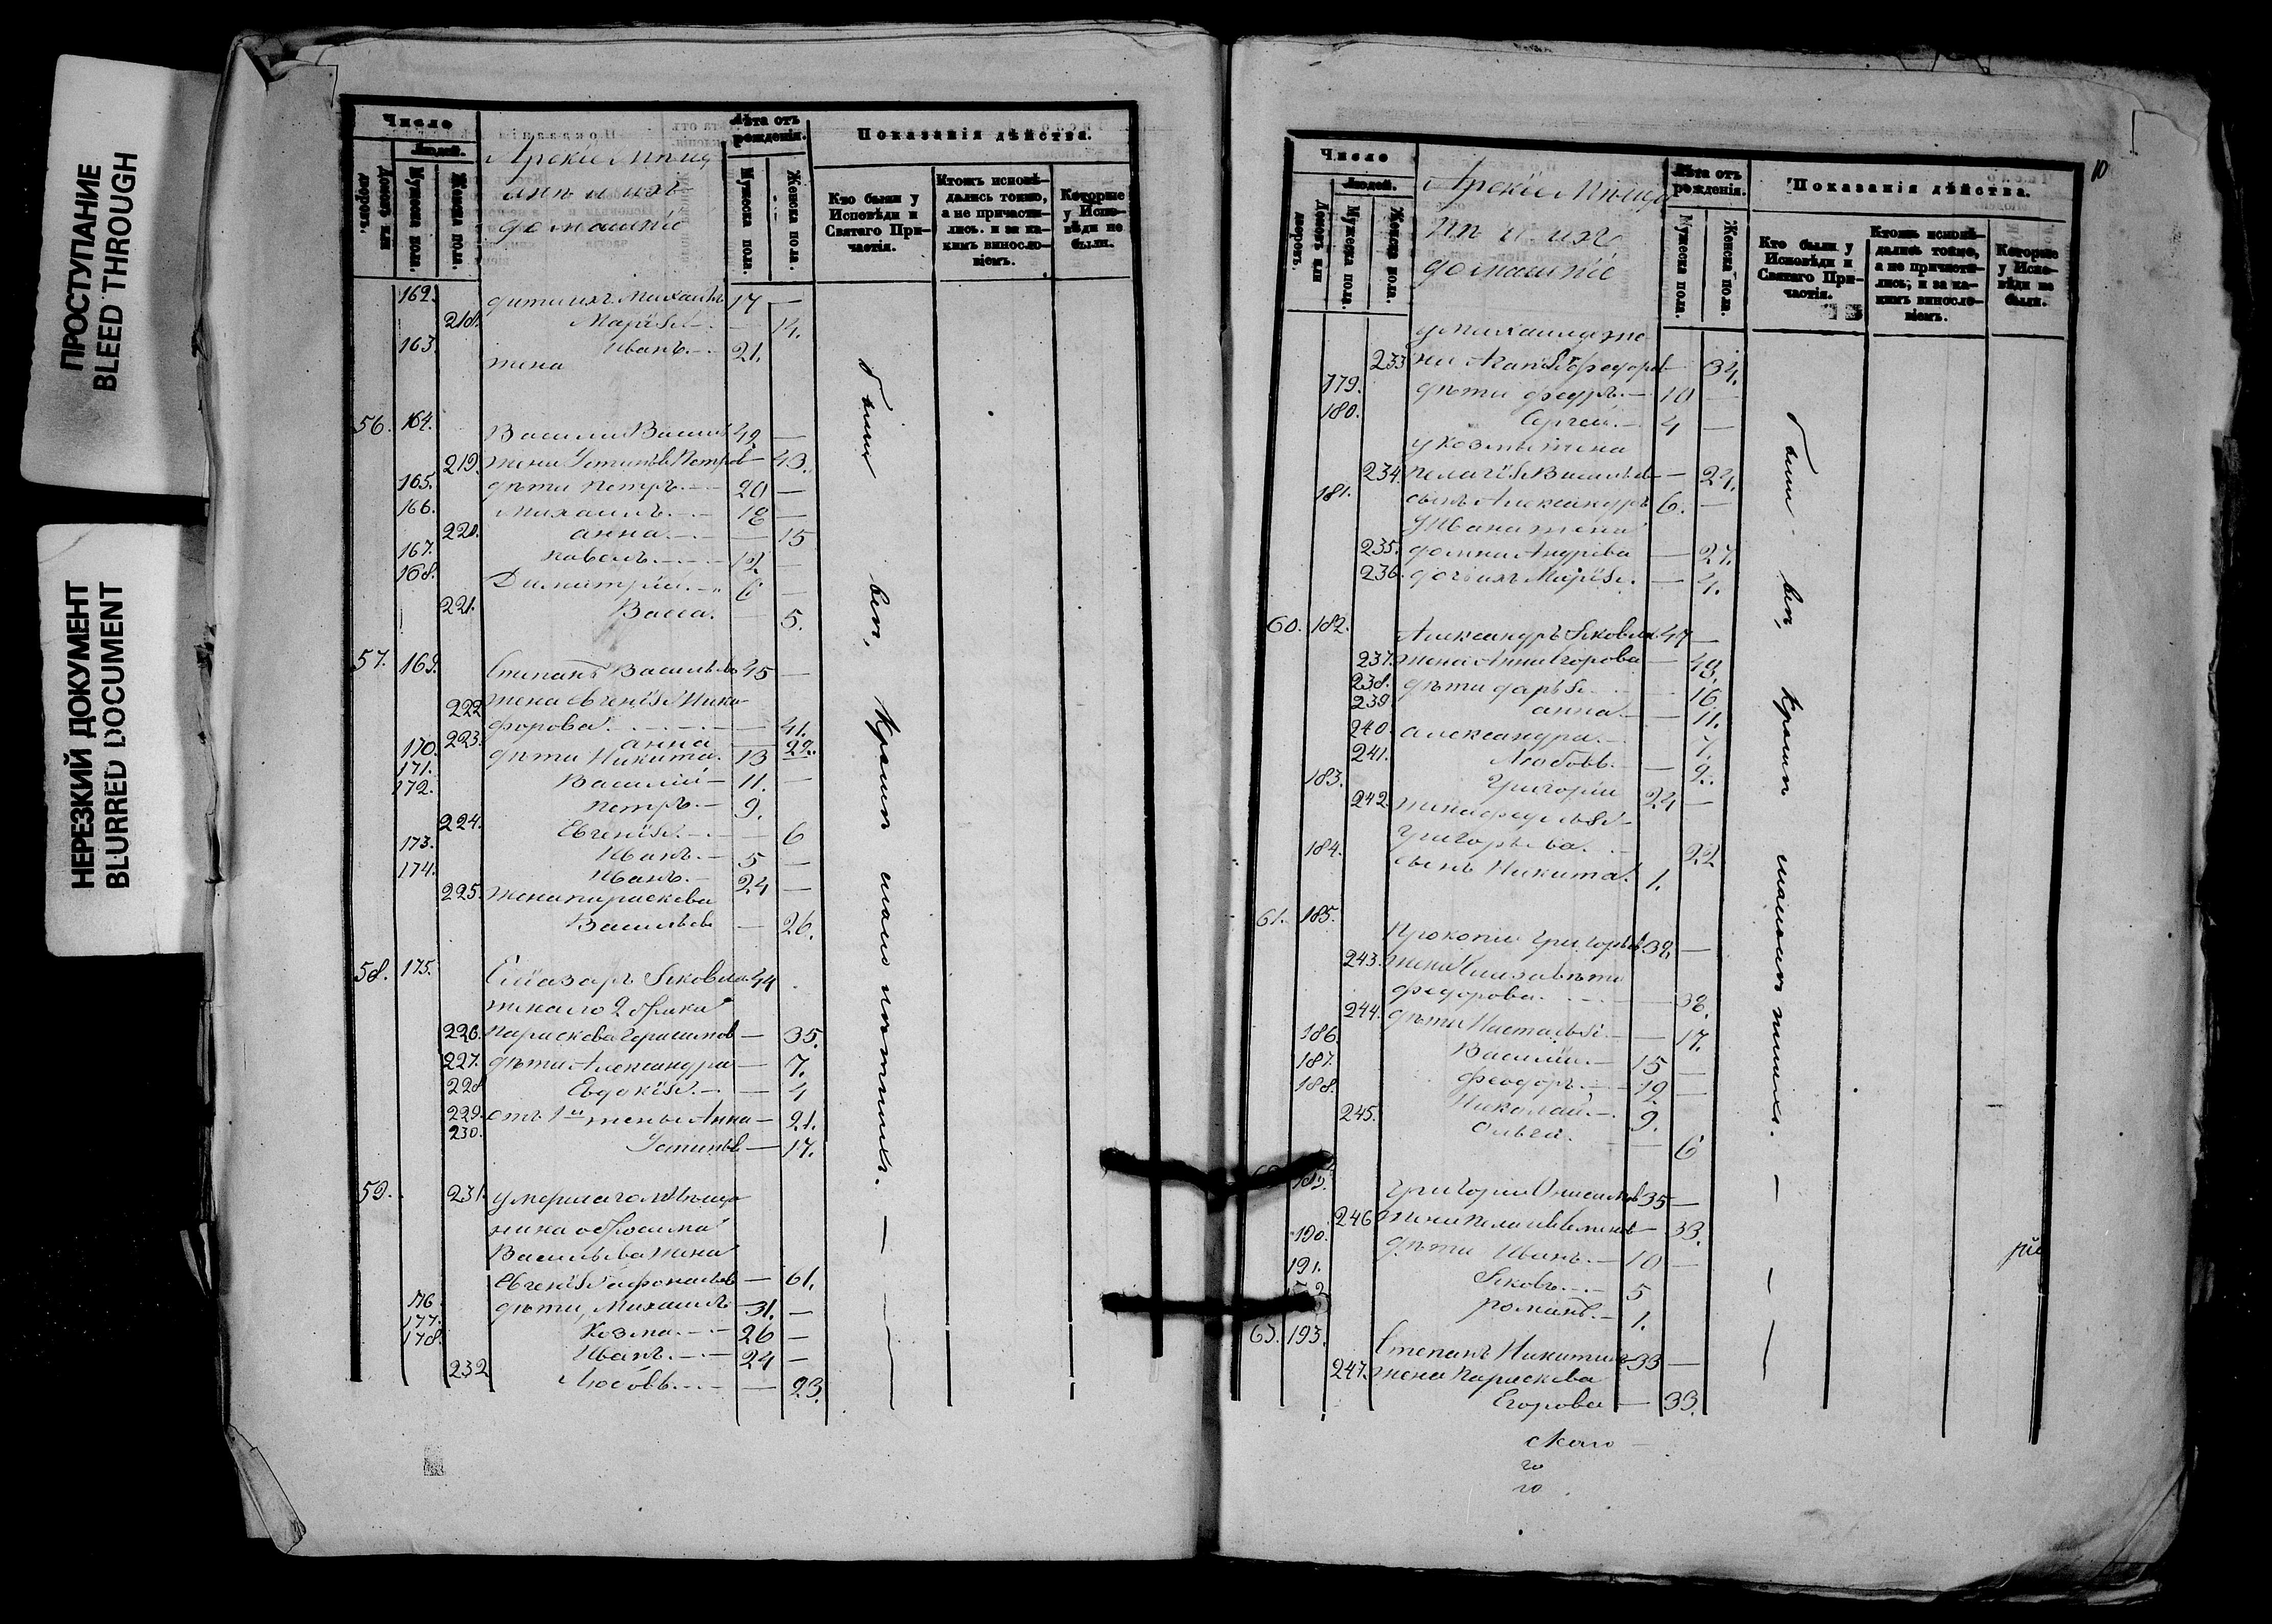 ПРОСТУПАНИЕ
BLEED THROUGH
НЕРЕЗКИЙ ДОКУМЕНТ
BLURRED DOCUMENT
Число
Людей.
Домовъ или дворовъ.
Мужеска пола.
Женска пола.
домашніе
Лѣта отъ рожденія.
Мужеска пола.
Женска пола.
Показанія дѣйства.
Кто были у Исповѣди и Святаго Причастія.
Ктожъ исповѣдались токмо, а не причастились, и за какимъ винословіемъ.
Которые у Исповѣди не были.
162. дѣти ихъ Михаилъ 17 —
218. Марія — 14.
163. Иванъ 21.
жена
56. 164. Василій Васил 42. —
219. жена Устинья Петров — 43.
165. дѣти Петръ 20 —
166. Михаилъ 18 —
220. Анна — 15
167. Павелъ 12. —
168. Димитрій 6 —
221. Васса. — 5.
57. 169. Степанъ Васильев 45 —
222 жена Евгенія Ники-
форова — 41.
223. Анна — 22.
170. дѣти Никита. 13
171. Василій 11. —
172. Петръ 9.
224. Евгенія — 6
173. Иванъ 5 —
174. Иванъ 24 —
225. жена Параскева
Васильева — 26.
58. 175. Елиазаръ Яковлев 44
жена его 2 брака
226. Параскева Герасимов — 35.
227. дѣти Александра — 7.
228 Евдокія — 4
229. отъ 1й жены Анна — 21.
230. Устинья — 17.
59. 231. умершаго мѣща
нина
Васильева жена
Евгенія — 61.
176 дѣти, Михаилъ 31. —
177. Козма 26 —
178. Иванъ 24 —
232 Любовь — 23.
были всѣ, кромѣ малолѣтнихъ.
10
Число
Людей.
Домовъ или дворовъ.
Мужеска пола.
Женска пола.
домашніе
Лѣта отъ рожденія.
Мужеска пола.
Женска пола.
Показанія дѣйства.
Кто были у Исповѣди и Святаго Причастія.
Ктожъ исповѣдались токмо, а не причастились, и за какимъ винословіемъ.
Которые у Исповѣди не были.
у Михаила же
233 на Агапія Федоров — 34.
179. дѣти Федръ 10 —
180. Сергей 4 —
у Козмы жена
234. Пелагія Васильев — 24.
181. сынъ Александръ 6. —
у Ивана жена
235. Домна Андрѣева — 27.
236. дочь ихъ Марія — 4.
60. 182. Александръ Яковлев 47 —
237. жена Анна Егорова — 49.
238. дѣти Дарья — 16
239. Анна — 11.
240. Александра 7.
241. Любовь — 2.
183. Григорій 24 —
242. жена
Григорьева 22
184. сынъ Никита. 1.
61. 185. Прокопій Григорьев 38 —
243. жена Елизавѣта
Федорова — 38.
244. дѣти Настасья — 17.
186. Василій 15 —
187. Феодоръ 12 —
188. Николай 9.
245. Ольга — 6
189. Григорій 35 —
246 жена — 33.
190. дѣти Иванъ 10 —
191. Яковъ 5
Романъ 1.
63. 193. Степанъ Никитин 33 —
247. жена Параскева
Егорова — 33.
были всѣ, кромѣ малолѣтнихъ. —
скаго
го
го